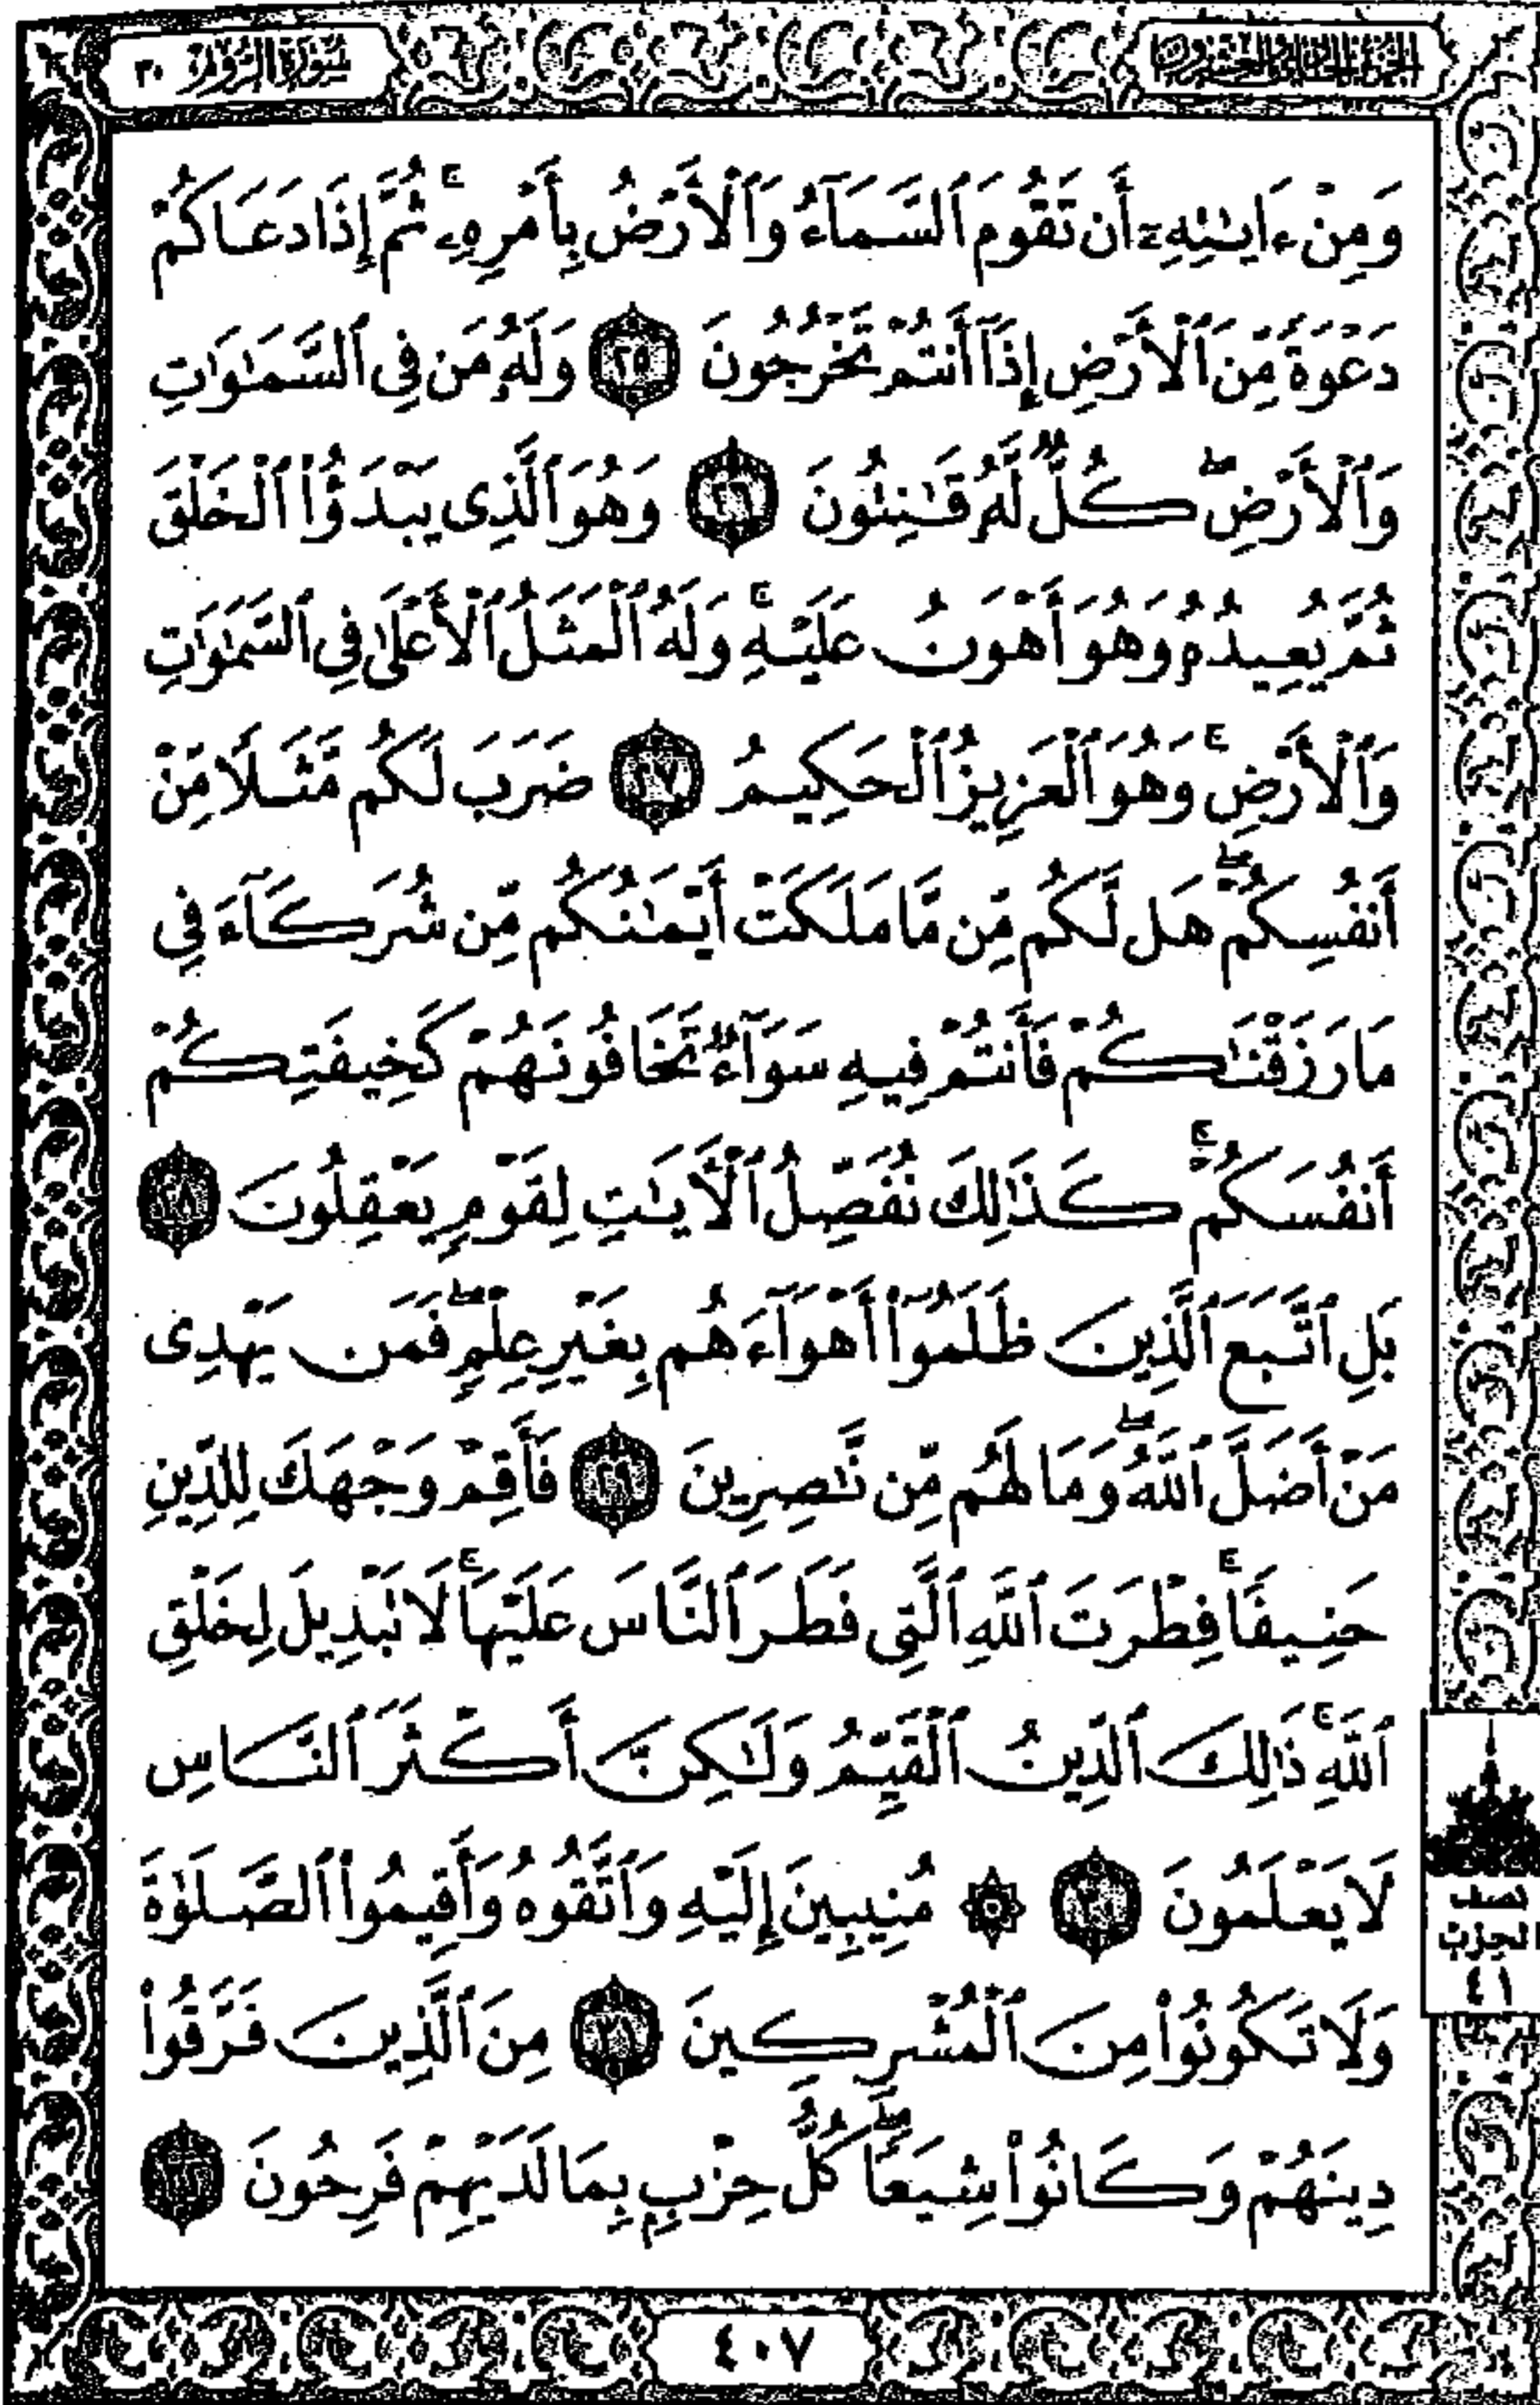 سُورَةُ الرُّومِ ٣٠
الجُزءُ الحَادِي وَالعِشْرُونَ
وَمِنْ ءَايَٰتِهِۦٓ أَن تَقُومَ ٱلسَّمَآءُ وَٱلْأَرْضُ بِأَمْرِهِۦۚ ثُمَّ إِذَا دَعَاكُمْ
دَعْوَةً مِّنَ ٱلْأَرْضِ إِذَآ أَنتُمْ تَخْرُجُونَ ٢٥ وَلَهُۥ مَن فِى ٱلسَّمَٰوَٰتِ
وَٱلْأَرْضِۖ كُلٌّ لَّهُۥ قَٰنِتُونَ ٢٦ وَهُوَ ٱلَّذِى يَبْدَؤُا۟ ٱلْخَلْقَ
ثُمَّ يُعِيدُهُۥ وَهُوَ أَهْوَنُ عَلَيْهِۚ وَلَهُ ٱلْمَثَلُ ٱلْأَعْلَىٰ فِى ٱلسَّمَٰوَٰتِ
وَٱلْأَرْضِۚ وَهُوَ ٱلْعَزِيزُ ٱلْحَكِيمُ ٢٧ ضَرَبَ لَكُم مَّثَلًا مِّنْ
أَنفُسِكُمْۖ هَل لَّكُم مِّن مَّا مَلَكَتْ أَيْمَٰنُكُم مِّن شُرَكَآءَ فِى
مَا رَزَقْنَٰكُمْ فَأَنتُمْ فِيهِ سَوَآءٌ تَخَافُونَهُمْ كَخِيفَتِكُمْ
أَنفُسَكُمْۚ كَذَٰلِكَ نُفَصِّلُ ٱلْءَايَٰتِ لِقَوْمٍ يَعْقِلُونَ ٢٨
بَلِ ٱتَّبَعَ ٱلَّذِينَ ظَلَمُوٓا۟ أَهْوَآءَهُم بِغَيْرِ عِلْمٍۖ فَمَن يَهْدِى
مَنْ أَضَلَّ ٱللَّهُۖ وَمَا لَهُم مِّن نَّٰصِرِينَ ٢٩ فَأَقِمْ وَجْهَكَ لِلدِّينِ
حَنِيفًاۚ فِطْرَتَ ٱللَّهِ ٱلَّتِى فَطَرَ ٱلنَّاسَ عَلَيْهَاۚ لَا تَبْدِيلَ لِخَلْقِ
ٱللَّهِۚ ذَٰلِكَ ٱلدِّينُ ٱلْقَيِّمُ وَلَٰكِنَّ أَكْثَرَ ٱلنَّاسِ
لَا يَعْلَمُونَ ٣٠ ۞ مُنِيبِينَ إِلَيْهِ وَٱتَّقُوهُ وَأَقِيمُوا۟ ٱلصَّلَوٰةَ
وَلَا تَكُونُوا۟ مِنَ ٱلْمُشْرِكِينَ ٣١ مِنَ ٱلَّذِينَ فَرَّقُوا۟
دِينَهُمْ وَكَانُوا۟ شِيَعًاۖ كُلُّ حِزْبٍۭ بِمَا لَدَيْهِمْ فَرِحُونَ ٣٢
نصف
الحزب
٤١
٤٠٧